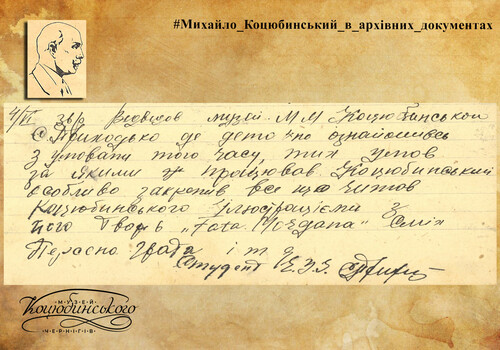 #Михайло_Коцюбинський_в_архівних_документах
4/VI відвідов музей М М Коцюбинського
Приходько де дето що ознайомивсь
З умовати того часу, тих умов
за якими працював Коцюбинський
особливо закрепів все що читав
Коцюбинського Ілюстрацієми з
його творів „Fata Morgana" Смія
і т д
Студент
МУЗЕЙ
Коцюбинського
ЧЕРНІГІВ